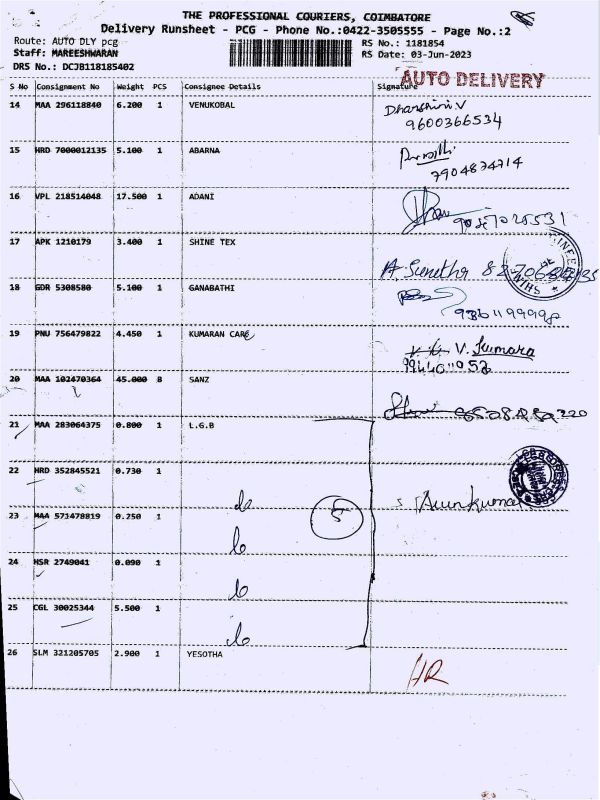 THE PROFESSIONAL COURIERS, COIMBATORE
Delivery Runsheet - PCG - Phone No.:0422-3505555 - Page No.:2
Route: AUTO DLY pcg RS No.: 1181854
Staff: MAREESHWARAN RS Date: 03-Jun-2023
DRS No.: DCJB118185402 AUTO DELIVERY
S No Consignment No Weight PCS Consignee Details Signature
14 MAA 296118840 6.200 1 VENUKOBAL Dharshini.V
9600366534
15 HRD 7000012135 5.100 1 ABARNA
7904874714
16 VPL 218514048 17.500 1 ADANI
17 APK 1210179 3.400 1 SHINE TEX
A. Sunetha
18 GDR 5308580 5.100 1 GANABATHI
19 PNU 756479822 4.450 1 KUMARAN CARE V. Kumara
20 MAA 102470364 45.000 8 SANZ
21 MAA 283064375 0.800 1 L.G.B
22 HRD 352845521 0.730 1 Arunkumar
do 5
23 MAA 571478819 0.250 1
24 HSR 2749041 0.090 1
25 CGL 30025344 5.500 1
26 SLM 321205705 2.900 1 YESOTHA HR